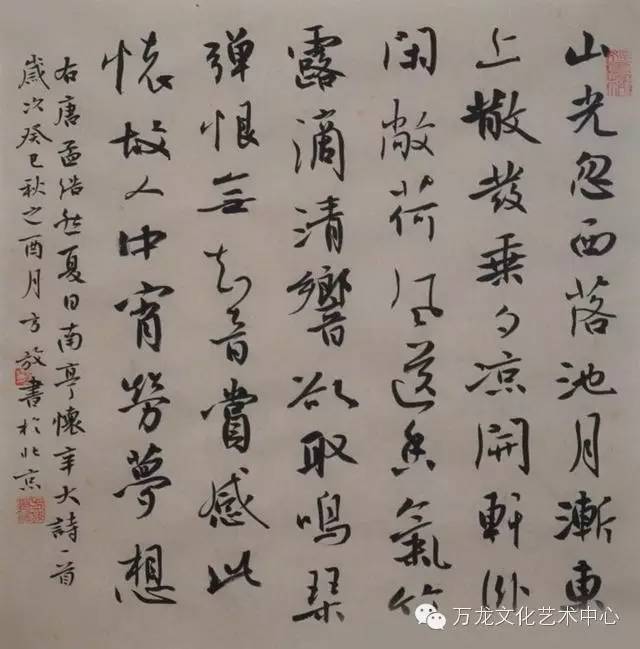 山光忽西落池月漸東
上散發乘夕凉開軒卧
閑敞荷風送香氣竹
露滴清響欲取鳴琴
彈恨無知音賞感此
懷故人中宵勞夢想
右唐孟浩然夏日南亭懷辛大詩一首
歲次癸巳秋之酉月方放書於北京
万龙文化艺术中心